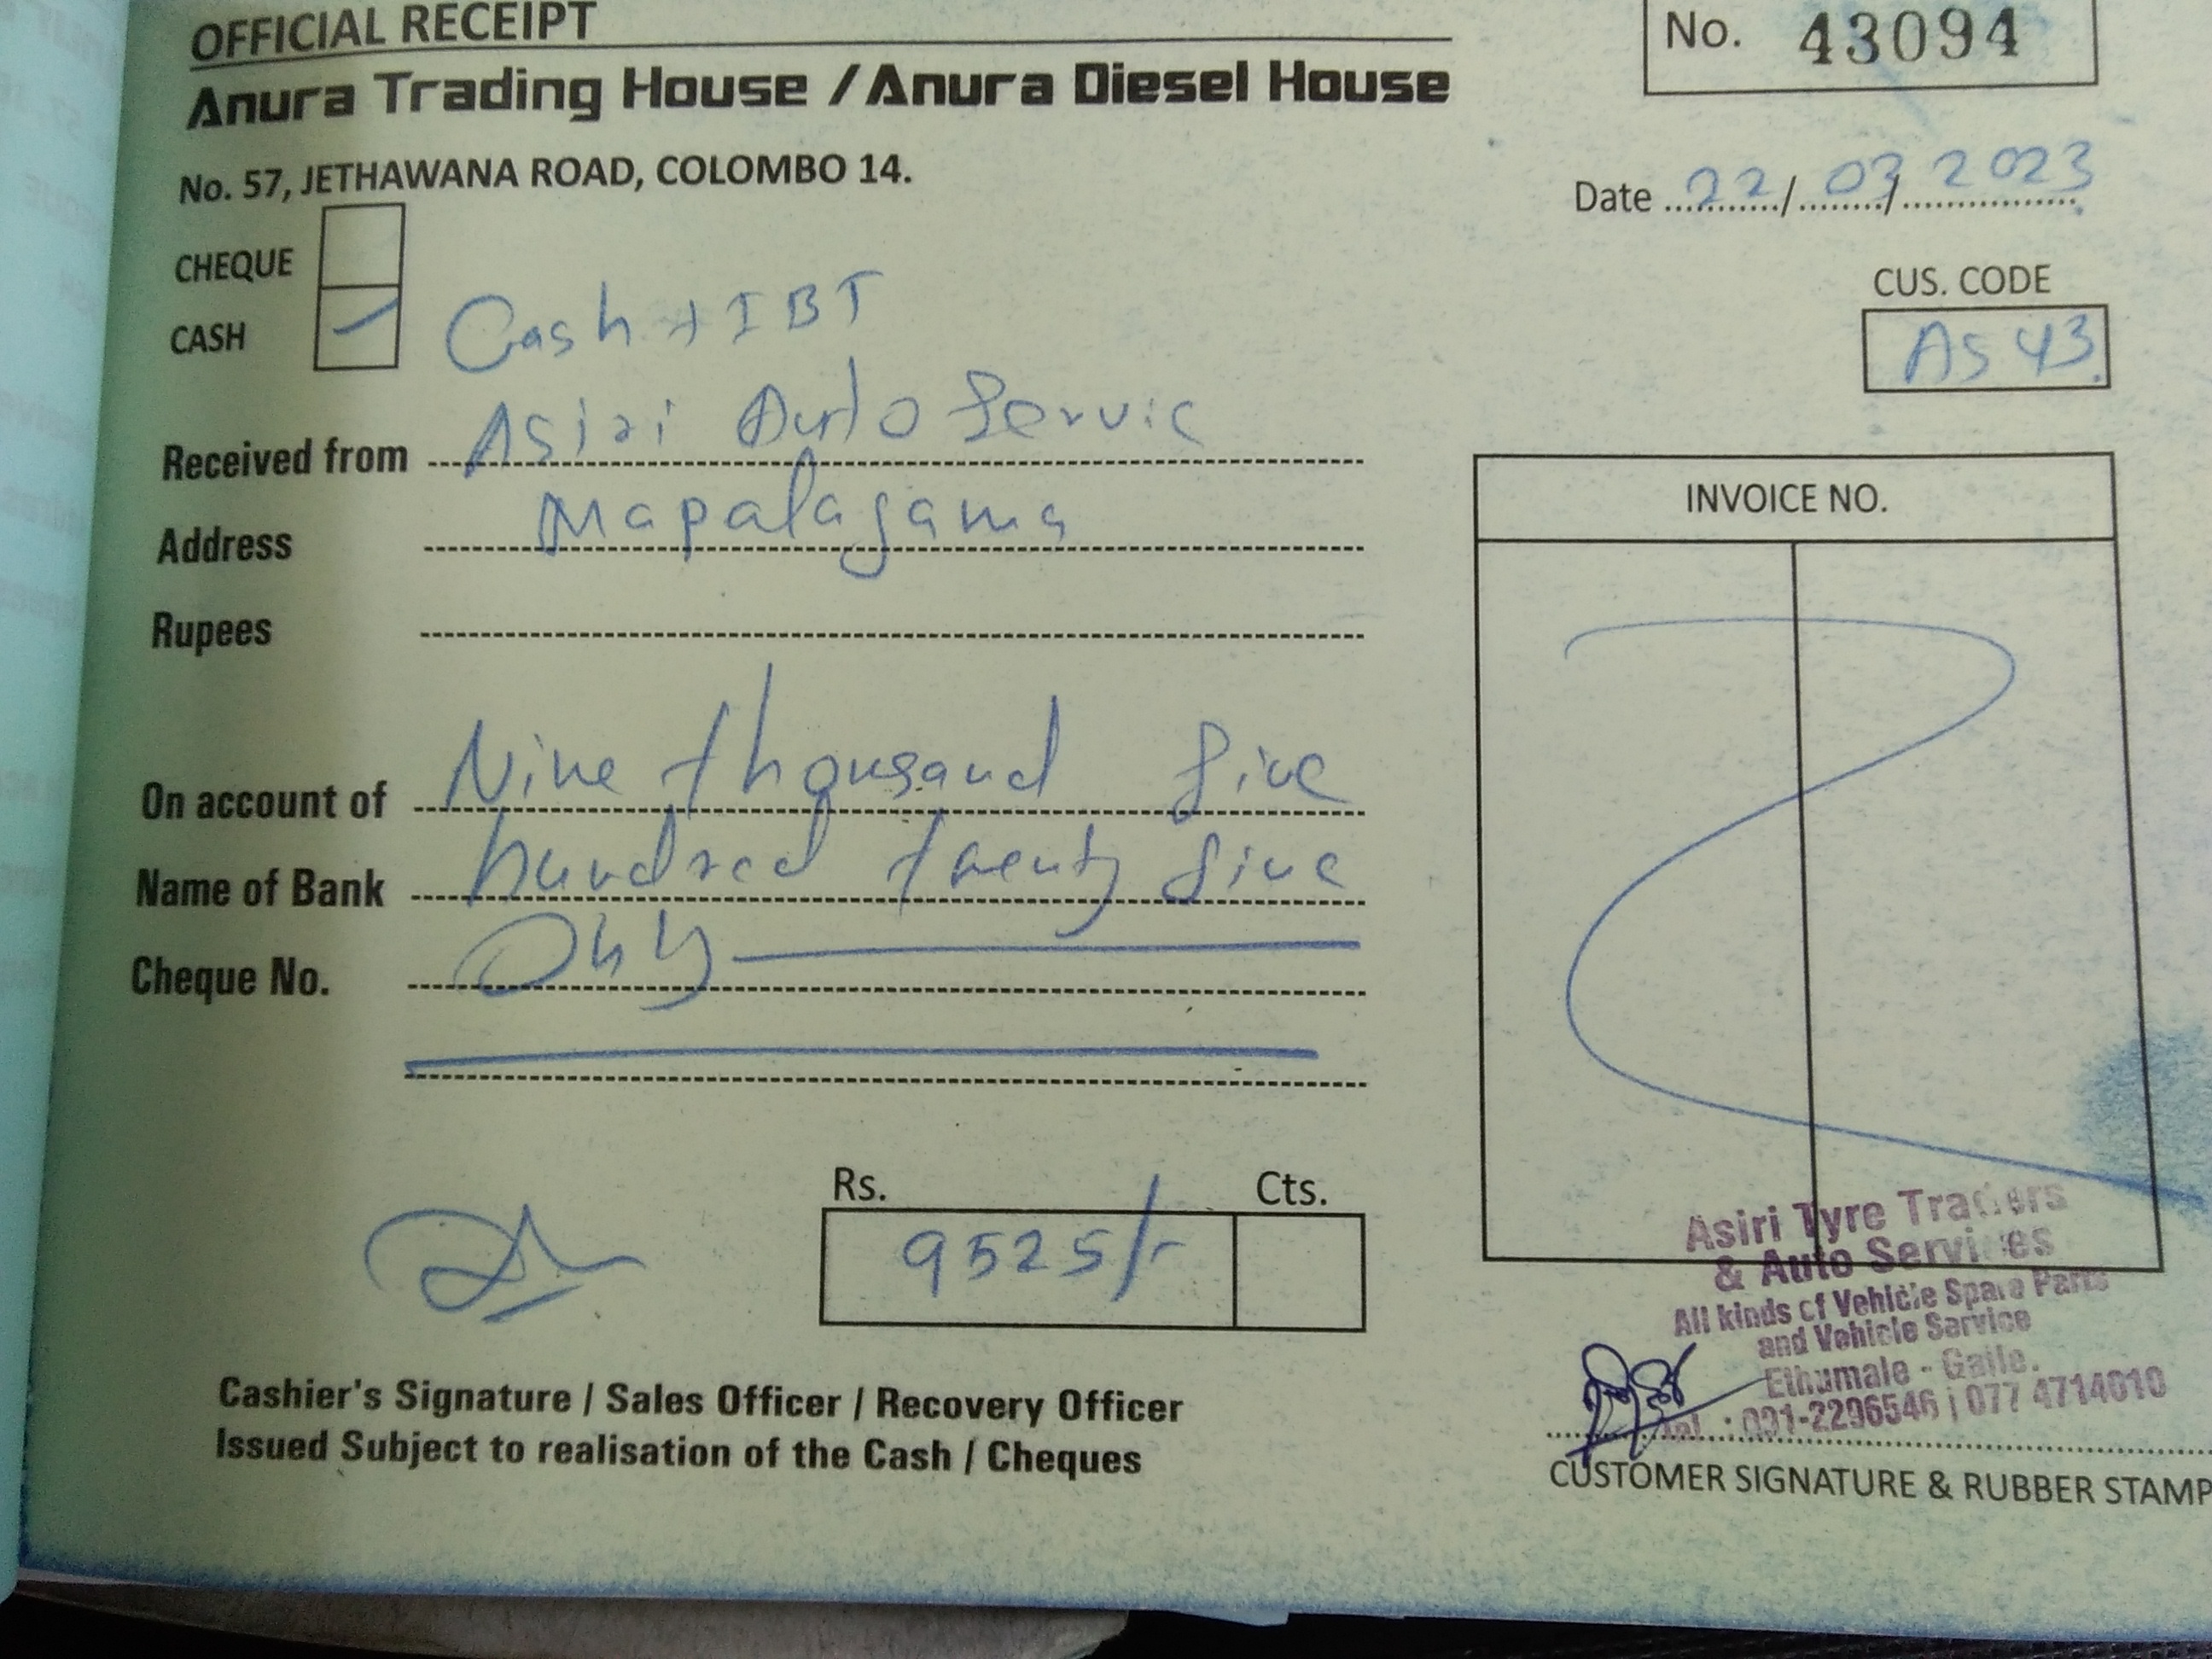 OFFICIAL RECEIPT
No. 43094
Anura Trading House / Anura Diesel House
No. 57, JETHAWANA ROAD, COLOMBO 14.
Date 22/03/2023
CHEQUE
CUS. CODE
CASH Cash + IBT
AS 43
Received from Asiri Auto Servic
Address Mapalagama
INVOICE NO.
Rupees
On account of Nine thousand five
Name of Bank hundred twenty five
Cheque No. Only
Rs. Cts.
9525/-
Asiri Tyre Traders
& Auto Services
All kinds of Vehicle Spare Parts
and Vehicle Service
Ethumale - Galle.
Tel. : 091-2296546 | 077 4714610
Cashier's Signature / Sales Officer / Recovery Officer
Issued Subject to realisation of the Cash / Cheques
CUSTOMER SIGNATURE & RUBBER STAMP